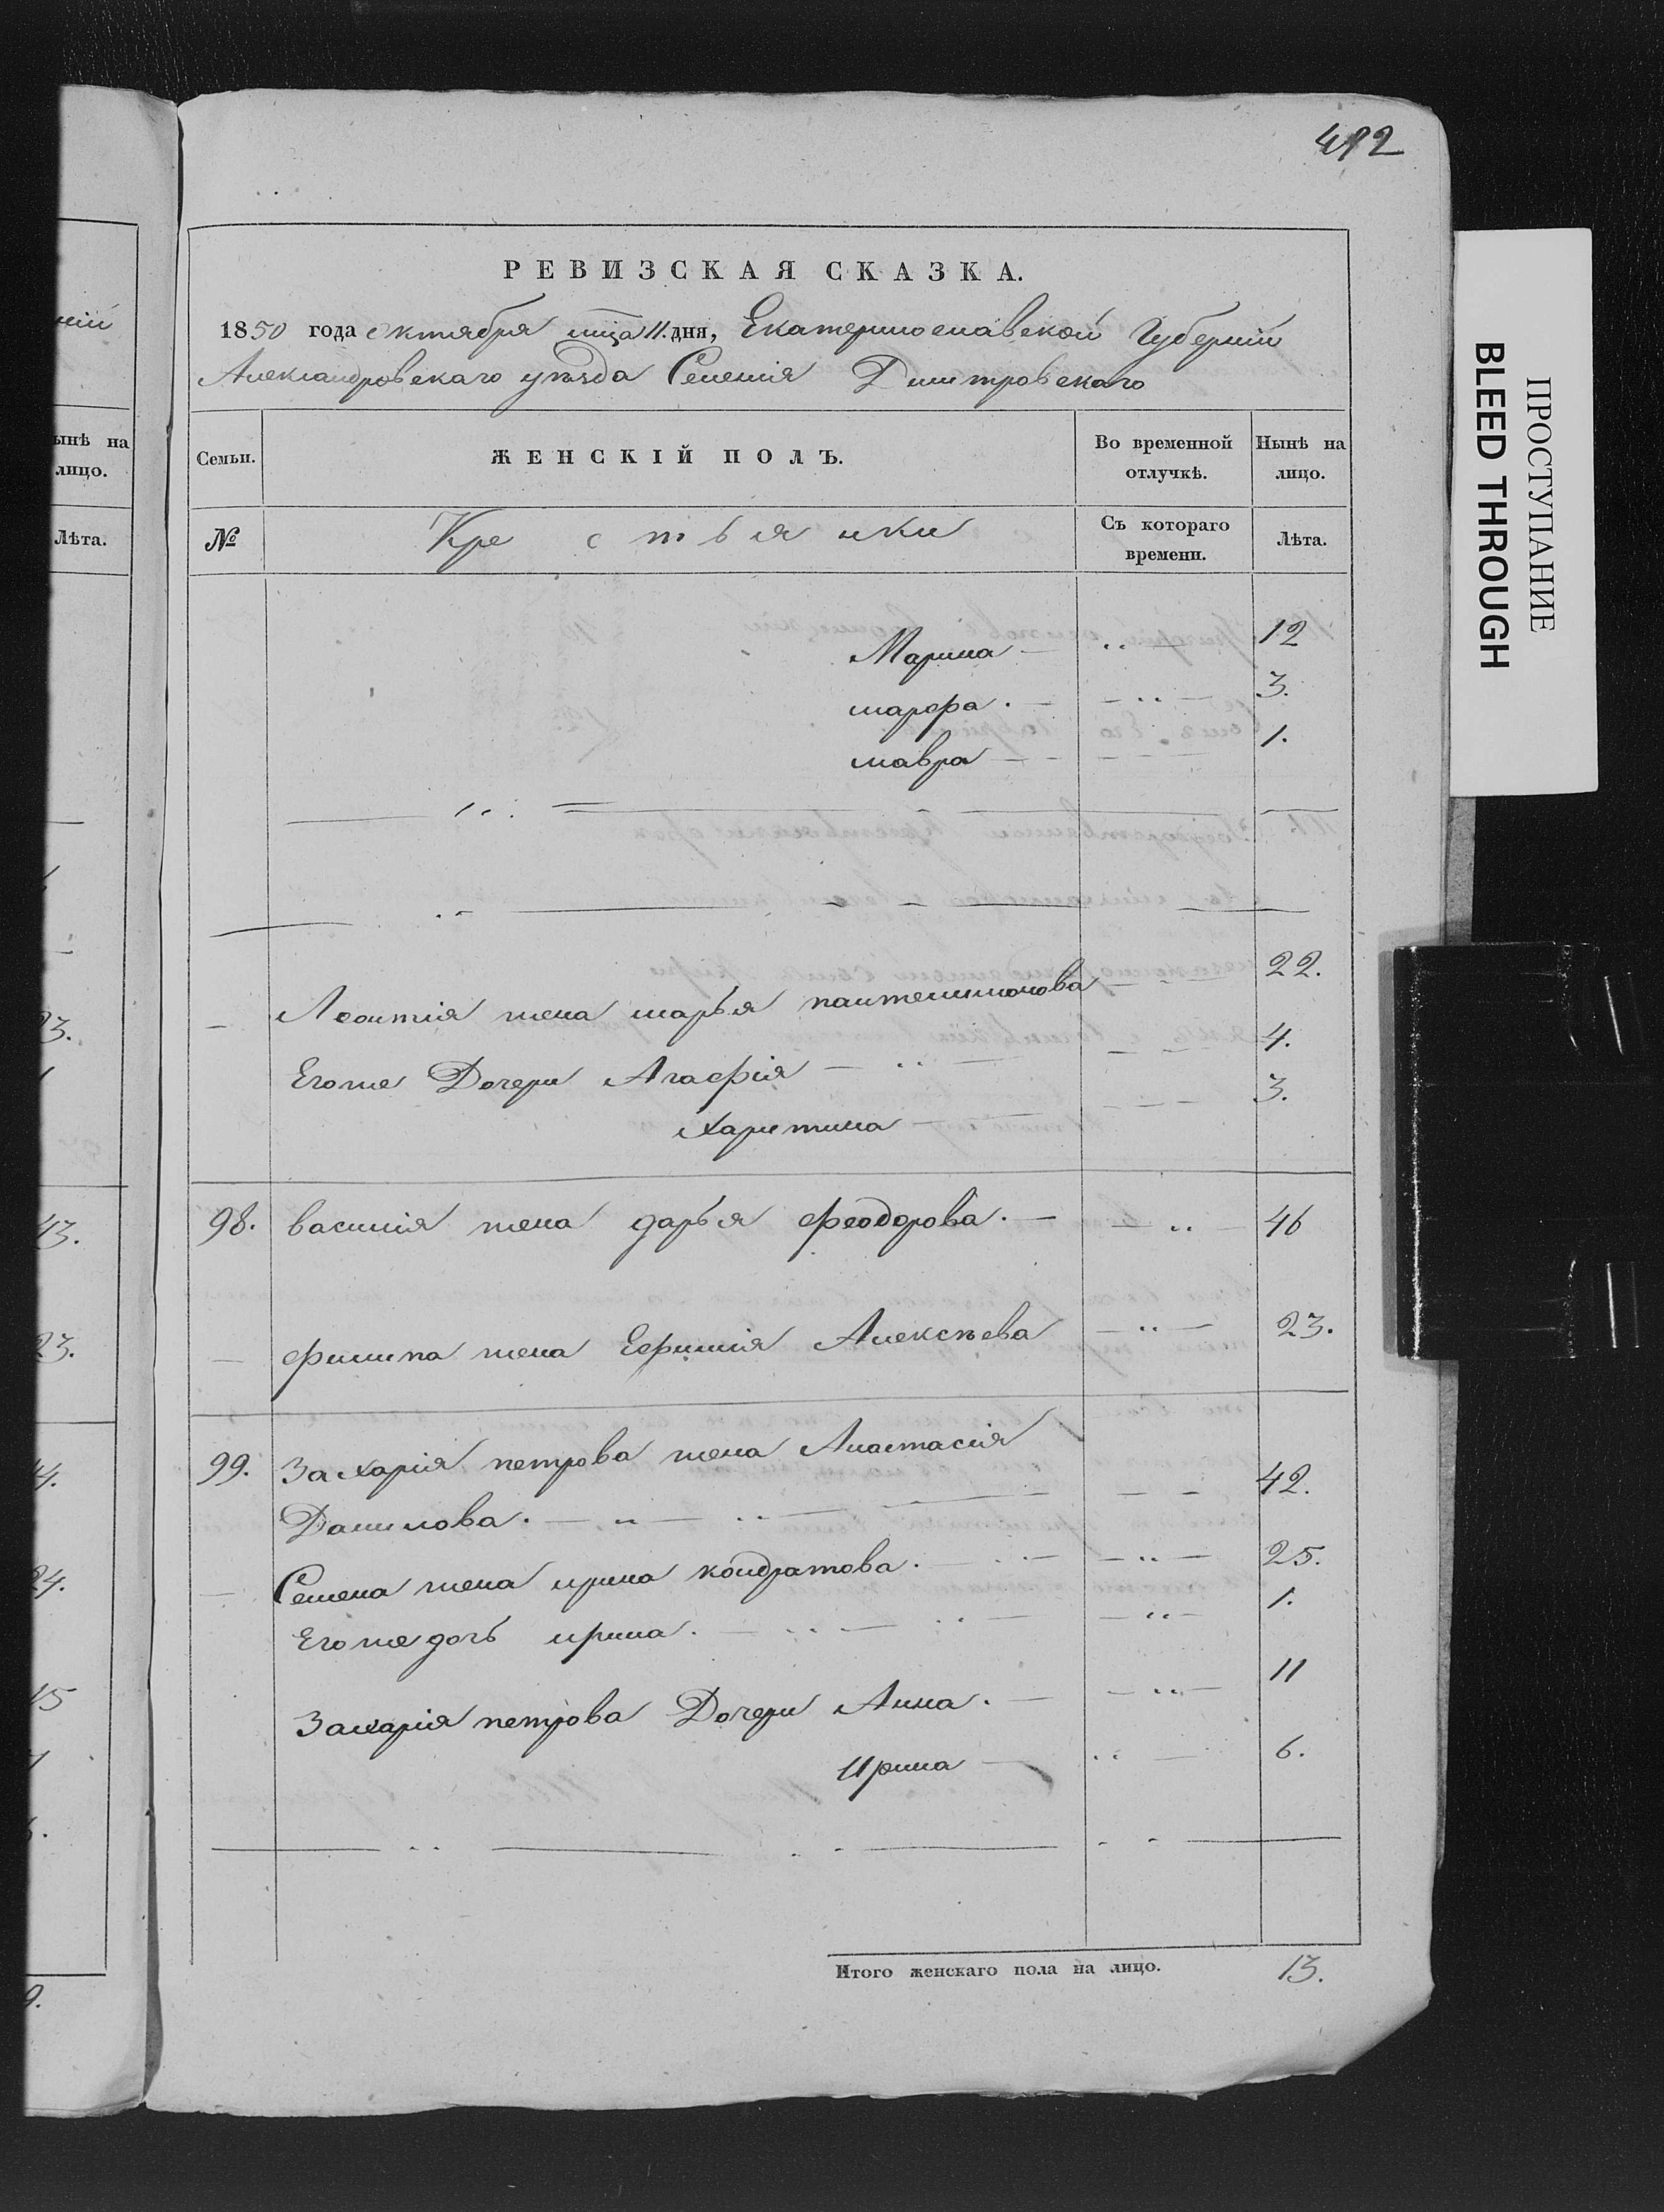 412
РЕВИЗСКАЯ СКАЗКА.
1850 года октября мца 11. дня, Екатеринославской Губерніи
Александровскаго уѣзда Селенія Дмитровскаго
Семьи. ЖЕНСКІЙ ПОЛЪ. Во временной отлучкѣ. Нынѣ на лицо.
№ Крестьянки Съ котораго времени. Лѣта.
Марина 12
марфа. 3.
мавра 1.
Леонтія жена марья пантелимонова 22.
Егоже Дочери Агафія 4.
Харитина 3.
98. василія жена дарья феодорова. 46
филипа жена Ефимія Алексѣева 23.
99. Захарія петрова жена Анастасія
Данилова. 42.
Семена жена ирина кондратова. 25.
Егоже дочь ирина. 1.
Захарія петрова Дочери Анна. 11
Ирина 6.
Итого женскаго пола на лицо. 13.
ынѣ на
лицо.
Лѣта.
23.
ПРОСТУПАНИЕ
BLEED THROUGH